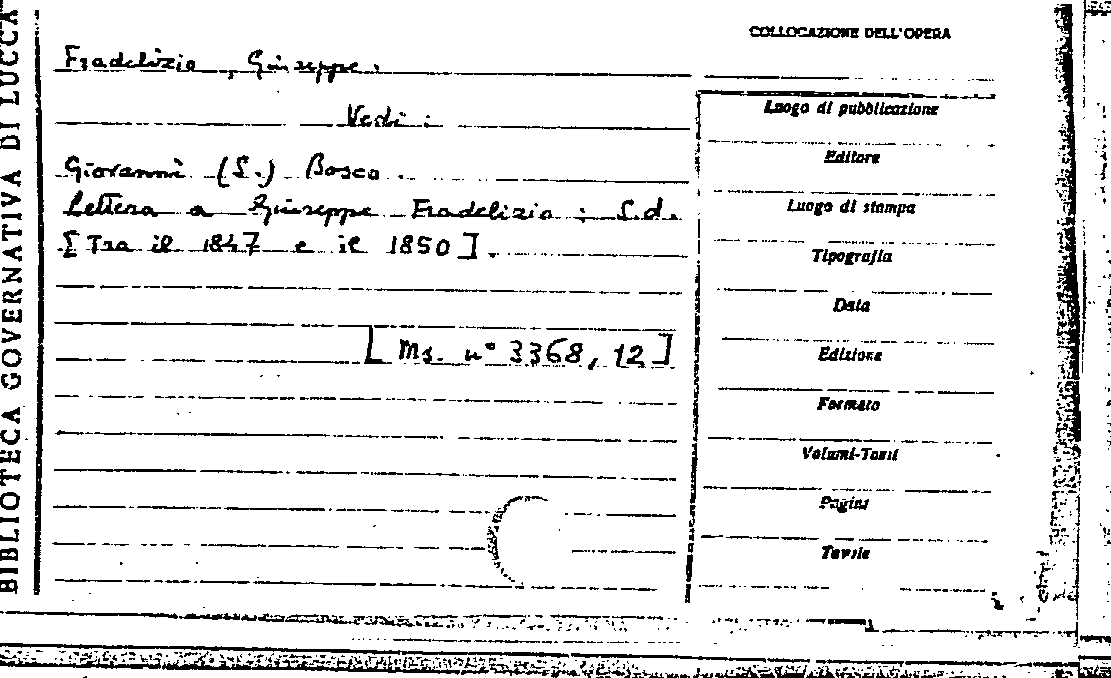 BIBLIOTECA GOVERNATIVA DI LUCCA
Fradelizio, Giuseppe.
Vedi:
Giovanni (S.) Bosco.
Lettera a Giuseppe Fradelizio: S.d.
[Tra il 1847 e il 1850].
[Ms. n° 3368, 12]
COLLOCAZIONE DELL'OPERA
Luogo di pubblicazione
Editore
Luogo di stampa
Tipografia
Data
Edizione
Formato
Volumi-Tomi
Pagine
Tavole